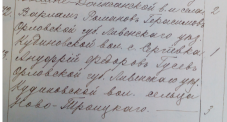 Варлаам Романов Герасимов
Орловской губ. Ливенского уез.
Кудиновской вол. с. Сергиевка.
Андрей Федоров Гусев
Орловской губ. Ливенского уез.
Кудиновской вол. сельца
Ново-Троицкаго.